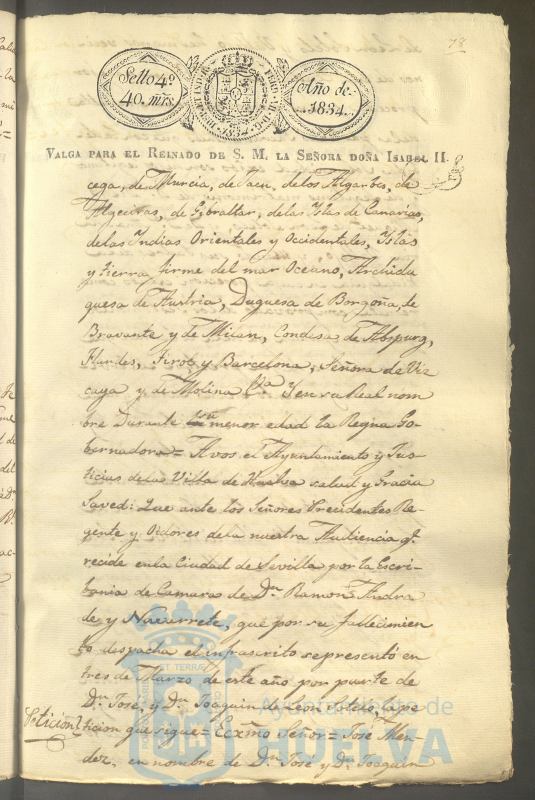 78
Sello 4º
40. mrs.
Año de
1834.
VALGA PARA EL REINADO DE S. M. LA SEÑORA DOÑA ISABEL II.
cega, de Murcia, de Jaen, de los Algarbes, de
Algeciras, de Gibraltar, de las Islas de Canarias,
de las Indias Orientales y Occidentales, Islas
y tierra firme del mar Oceano, Archidu
quesa de Austria, Duquesa de Borgoña, de
Bravante y de Milan, Condesa de Abspurg,
Flandes, Tirol y Barcelona, Señora de Viz
caya y de Molina &a. Y en su Real nom
bre Durante su menor edad la Reyna Go
bernadora = A vos el Ayuntamiento y Jus
ticias de la Villa de Huelva salud y Gracia
Saved: Que ante los Señores Precidentes Re
gente y Oidores de la nuestra Audiencia q.
recide en la Ciudad de Sevilla por la Escri
bania de Camara de Dn. Ramon Andra
de y Navarrete, que por su fallecimien
to despacha el infrascrito se presentó en
tres de Marzo de este año por parte de
Dn. José, y Dn. Joaquin de Leon Sotelo, la pe
Peticion
ticion que sigue = Excmo Señor = José Men
dez, en nombre de Dn. José y Dn. Joaquin
Ayuntamiento de
HUELVA